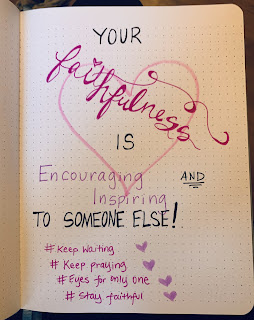 YOUR
faithfulness
IS
Encouraging AND
Inspiring
TO SOMEONE ELSE!
# Keep waiting
# Keep praying
# Eyes for only one
# Stay faithful